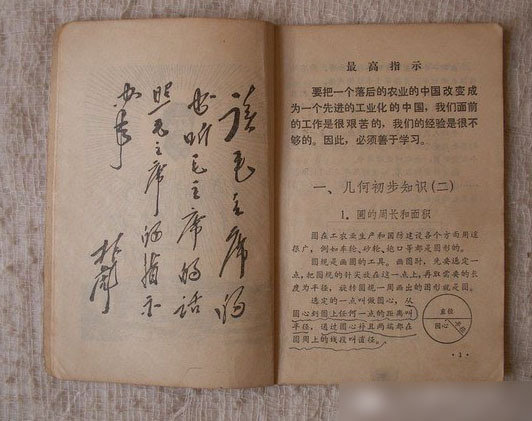 读毛主席的
书听毛主席的话
照毛主席的指示
办事
林彪
最高指示
要把一个落后的农业的中国改变成
为一个先进的工业化的中国，我们面前
的工作是很艰苦的，我们的经验是很不
够的。因此，必须善于学习。
一、几何初步知识(二)
1. 圆的周长和面积
圆在工农业生产和国防建设各个方面用途
很广，例如车轮、砂轮、炮口等都是圆形的。
圆规是画圆的工具。画圆时，先要选定一
点，把圆规的针尖放在这一点上，再取需要的长
度为半径，旋转圆规一周画出的图形就是圆。
选定的一点叫做圆心，从
圆心到圆上任何一点的距离叫
半径，通过圆心并且两端都在
圆周上的线段叫直径。
直径
圆心
半径
· 1 ·